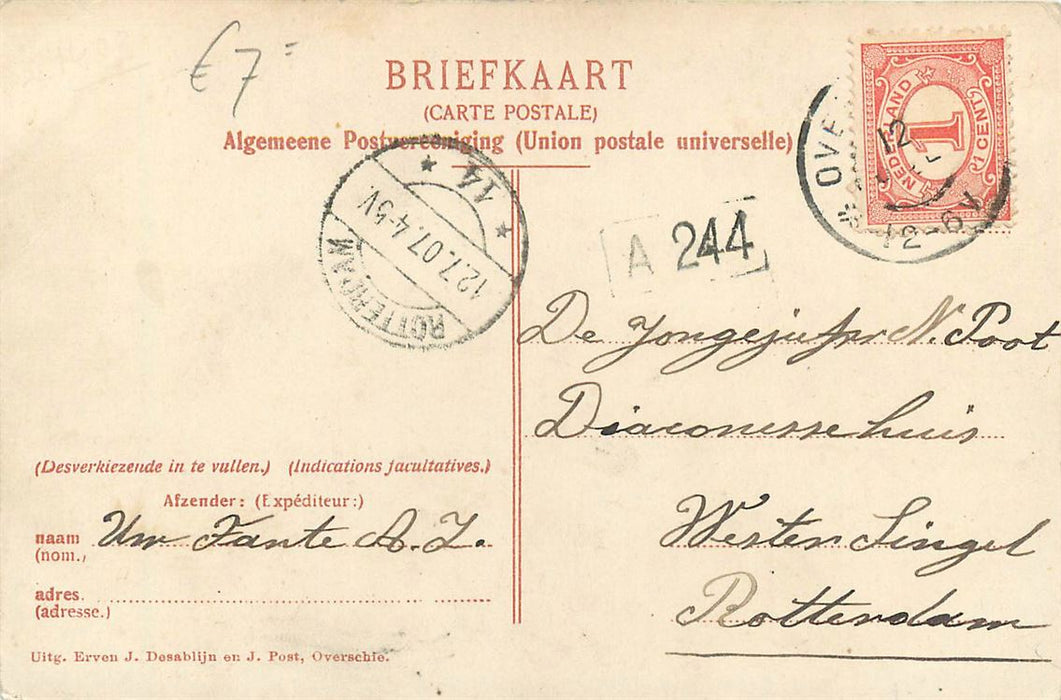 €7=
BRIEFKAART
(CARTE POSTALE)
Algemeene Postvereeniging (Union postale universelle)
NEDERLAND
1
1 CENT
OVE
12
12-6V
ROTTERDAM
12.7.07.4-5V
* 14 *
A 244
De Jongejufvr N. Poot
Diaconessehuis
Wester Singel
Rotterdam
(Desverkiezende in te vullen.) (Indications facultatives.)
Afzender: (Expéditeur:)
naam Uw Tante A. Z.
(nom.)
adres.
(adresse.)
Uitg. Erven J. Desablijn en J. Post, Overschie.